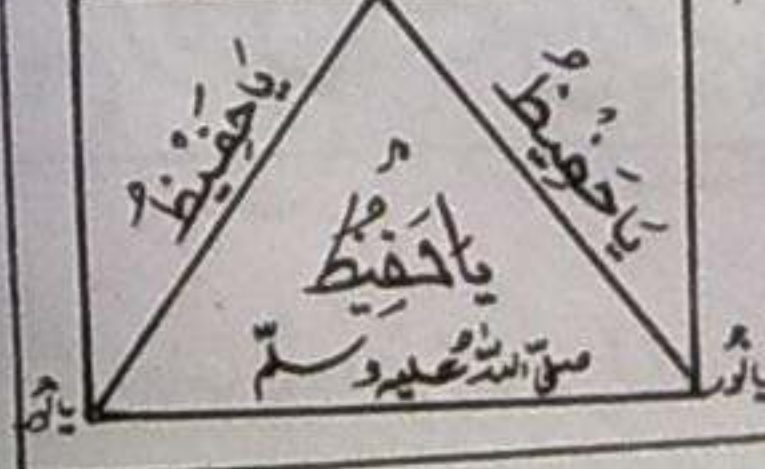 يَا حَفِيْظُ
يَا حَفِيْظُ
يا حَفِيْظُ
صلّی اللہ علیہ وسلّم
یا نُور